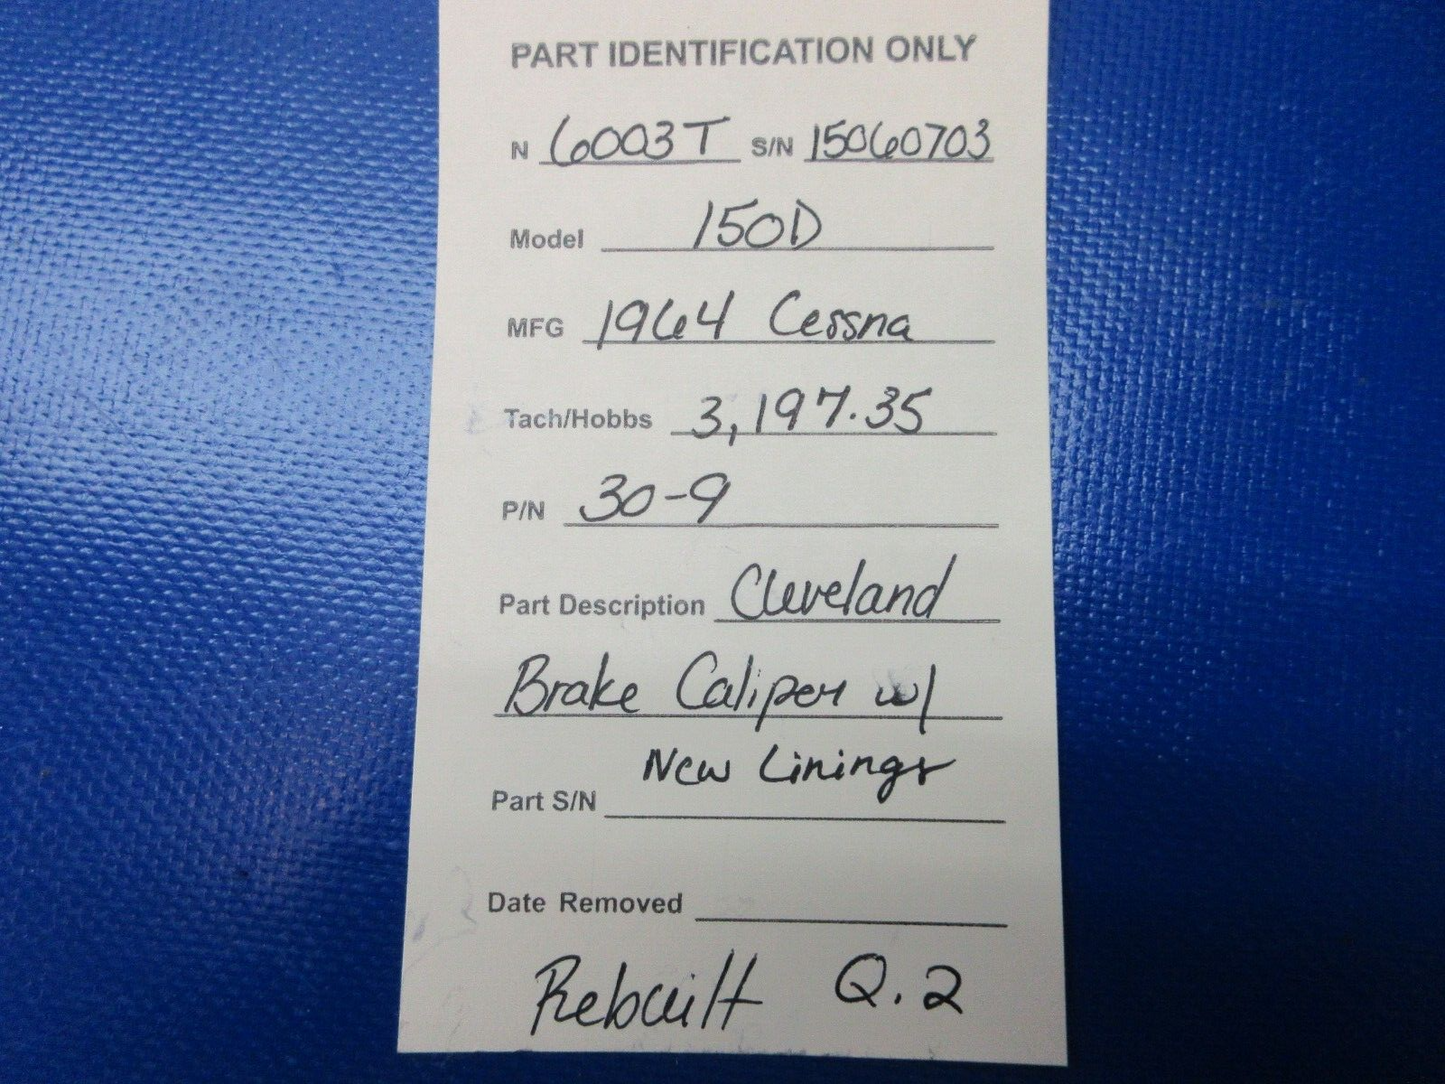 PART IDENTIFICATION ONLY
N 6003T S/N 15060703
Model 150D
MFG 1964 Cessna
Tach/Hobbs 3,197.35
P/N 30-9
Part Description Cleveland
Brake Caliper w/
New Linings
Part S/N
Date Removed
Rebuilt Q.2